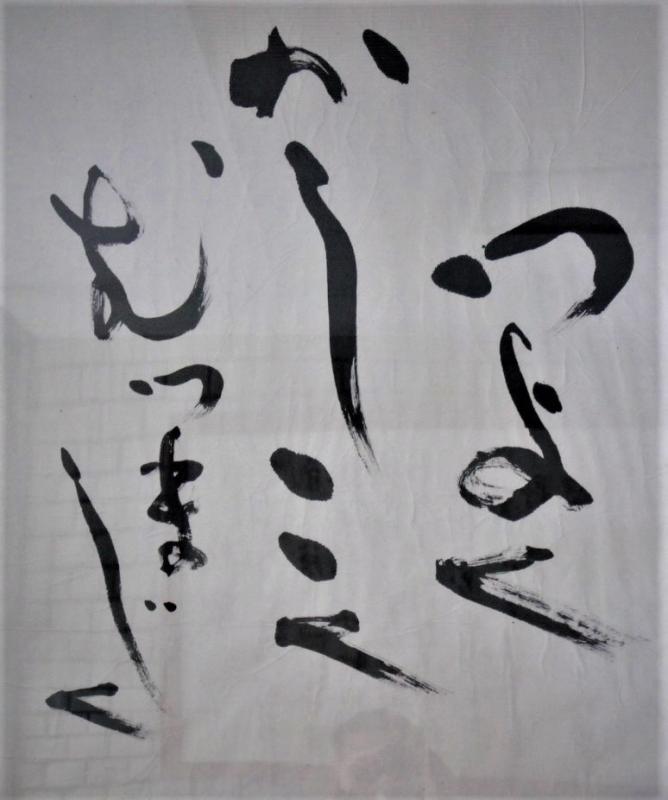 つよく
かしこく
むつまじく